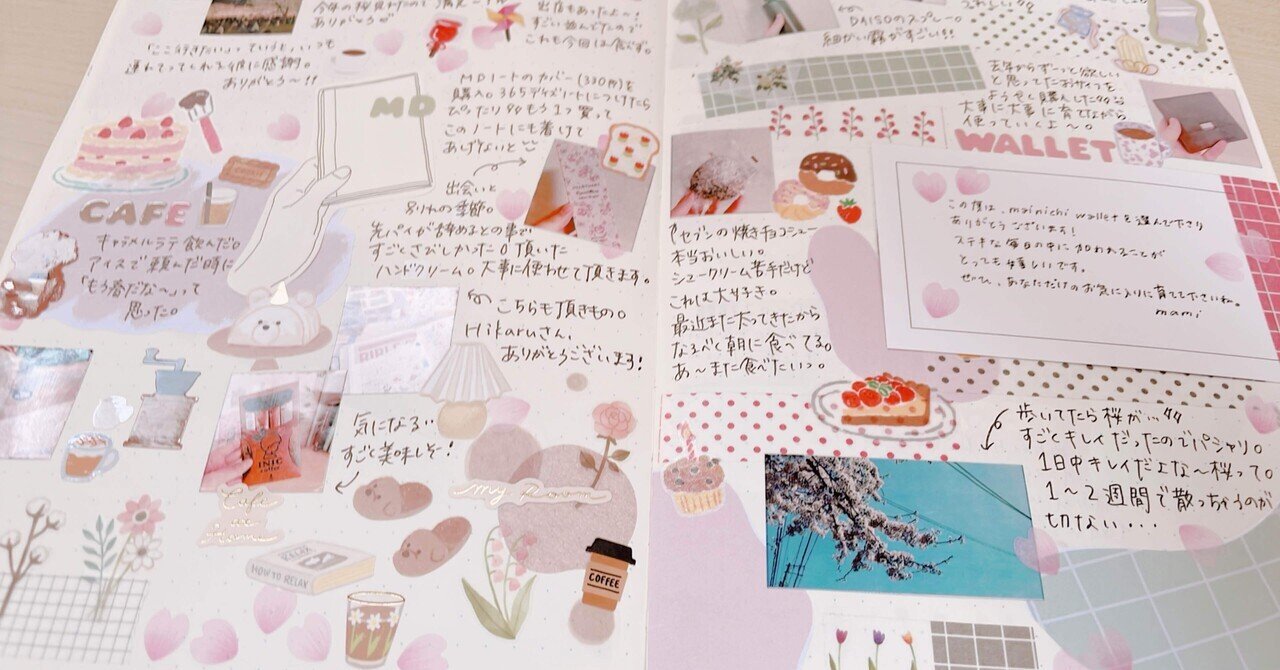 ありがとう
「ここ行きたい」っていうと、いつも
連れてってくれる彼に感謝。
ありがとう〜!!
出店もあったよ〜!
すごい並んでたので
これも今回は食べず。
MDノートのカバー(330円)を
購入。365デイズノートにつけたら
ぴったり もう1つ買って
このノートにも着けて
あげないと
MD
CAFE
キャラメルラテ飲んだ。
アイスで頼んだ時に
「もう春だな〜」って
思った。
出会いと
別れの季節。
先パイが辞めるとの事で
すごくさびしかった。頂いた
ハンドクリーム。大事に使わせて頂きます。
こちらも頂きもの。
Hikaruさん、
ありがとうございます!
気になる…
すごく美味しそ!
INIC
coffee
Cafe
at
Home
my Room
RELAX
HOW TO RELAX
COFFEE
DAISOのスプレー。
細かい霧がすごい!!
去年からずーっと欲しい
と思ってたおサイフを
ようやく購入した
大事に大事に育てながら
使っていくよ〜。
WALLET
この度は、mainichi walletを選んで下さり
ありがとうございます!
ステキな毎日の中に加われることが
とっても嬉しいです。
ぜひ、あなただけのお気に入りに育てて下さいね。
mami
セブンの焼きチョコシュー
本当おいしい。
シュークリーム苦手だけど
これは大好き。
最近また太ってきたから
なるべく朝に食べてる。
あ〜また食べたいっ。
歩いてたら桜が…
すごくキレイだったのでパシャリ。
1日中キレイだよな〜桜って。
1〜2週間で散っちゃうのが
切ない...